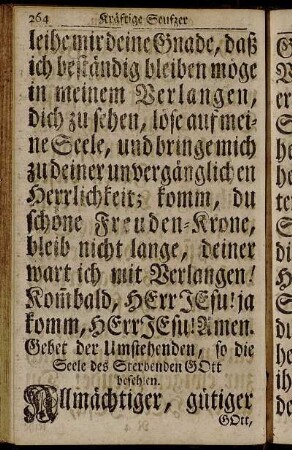 264 Kräftige Seufzer
leihe mir deine Gnade, daß
ich beständig bleiben möge
in meinem Verlangen,
dich zu sehen, löse auf mei-
ne Seele, und bringe mich
zu deiner unvergänglichen
Herrlichkeit; komm, du
schöne Freuden-Krone,
bleib nicht lange, deiner
wart ich mit Verlangen!
Kom̄ bald, HErr JEsu! ja
komm, HErr JEsu! Amen.
Gebet der Umstehenden, so die
Seele des Sterbenden GOtt
befehlen.
Allmächtiger, gütiger
GOtt,